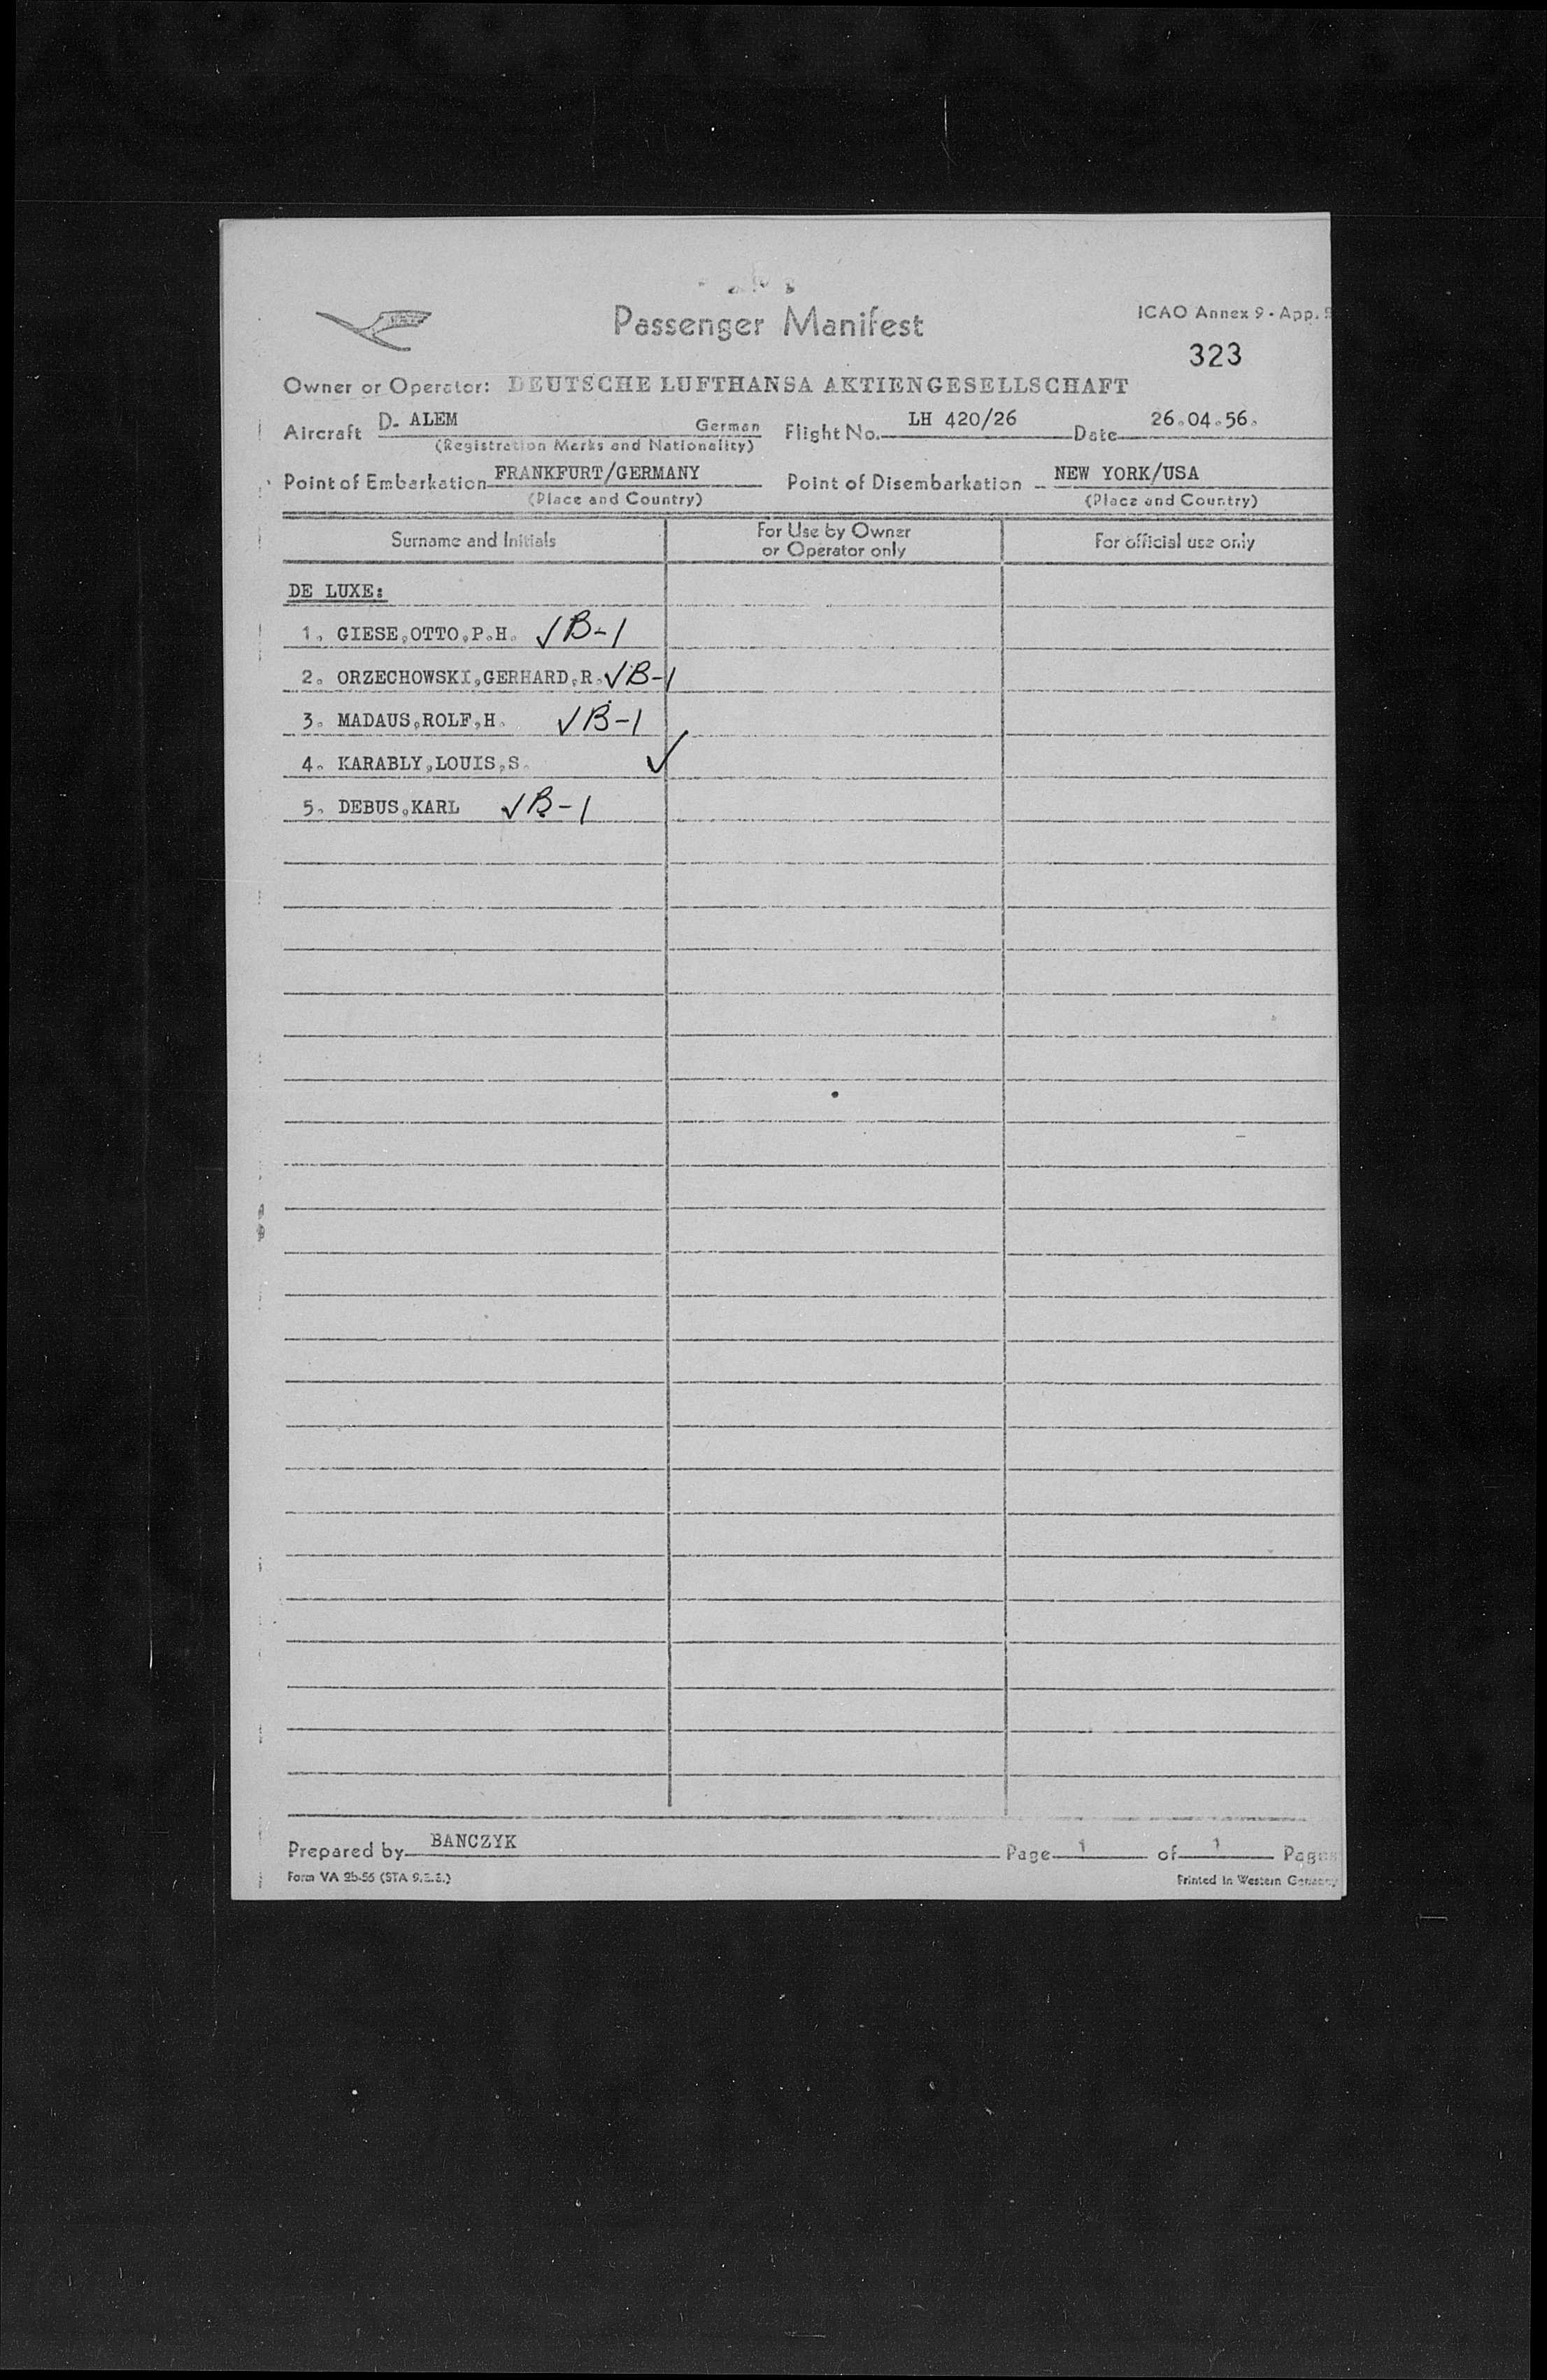 Passenger Manifest
ICAO Annex 9 - App.
323
Owner or Operator: DEUTSCHE LUFTHANSA AKTIENGESELLSCHAFT
Aircraft D- ALEM German Flight No. LH 420/26 Date 26.04.56.
(Registration Marks and Nationality)
Point of Embarkation FRANKFURT/GERMANY Point of Disembarkation NEW YORK/USA
(Place and Country) (Place and Country)
Surname and Initials For Use by Owner or Operator only For official use only
DE LUXE:
1. GIESE,OTTO,P.H. ✓B-1
2. ORZECHOWSKI,GERHARD,R. ✓B-1
3. MADAUS,ROLF,H. ✓B-1
4. KARABLY,LOUIS,S. ✓
5. DEBUS,KARL ✓B-1
Prepared by BANCZYK Page 1 of 1 Pages
Form VA 2b-56 Printed in Western Germany